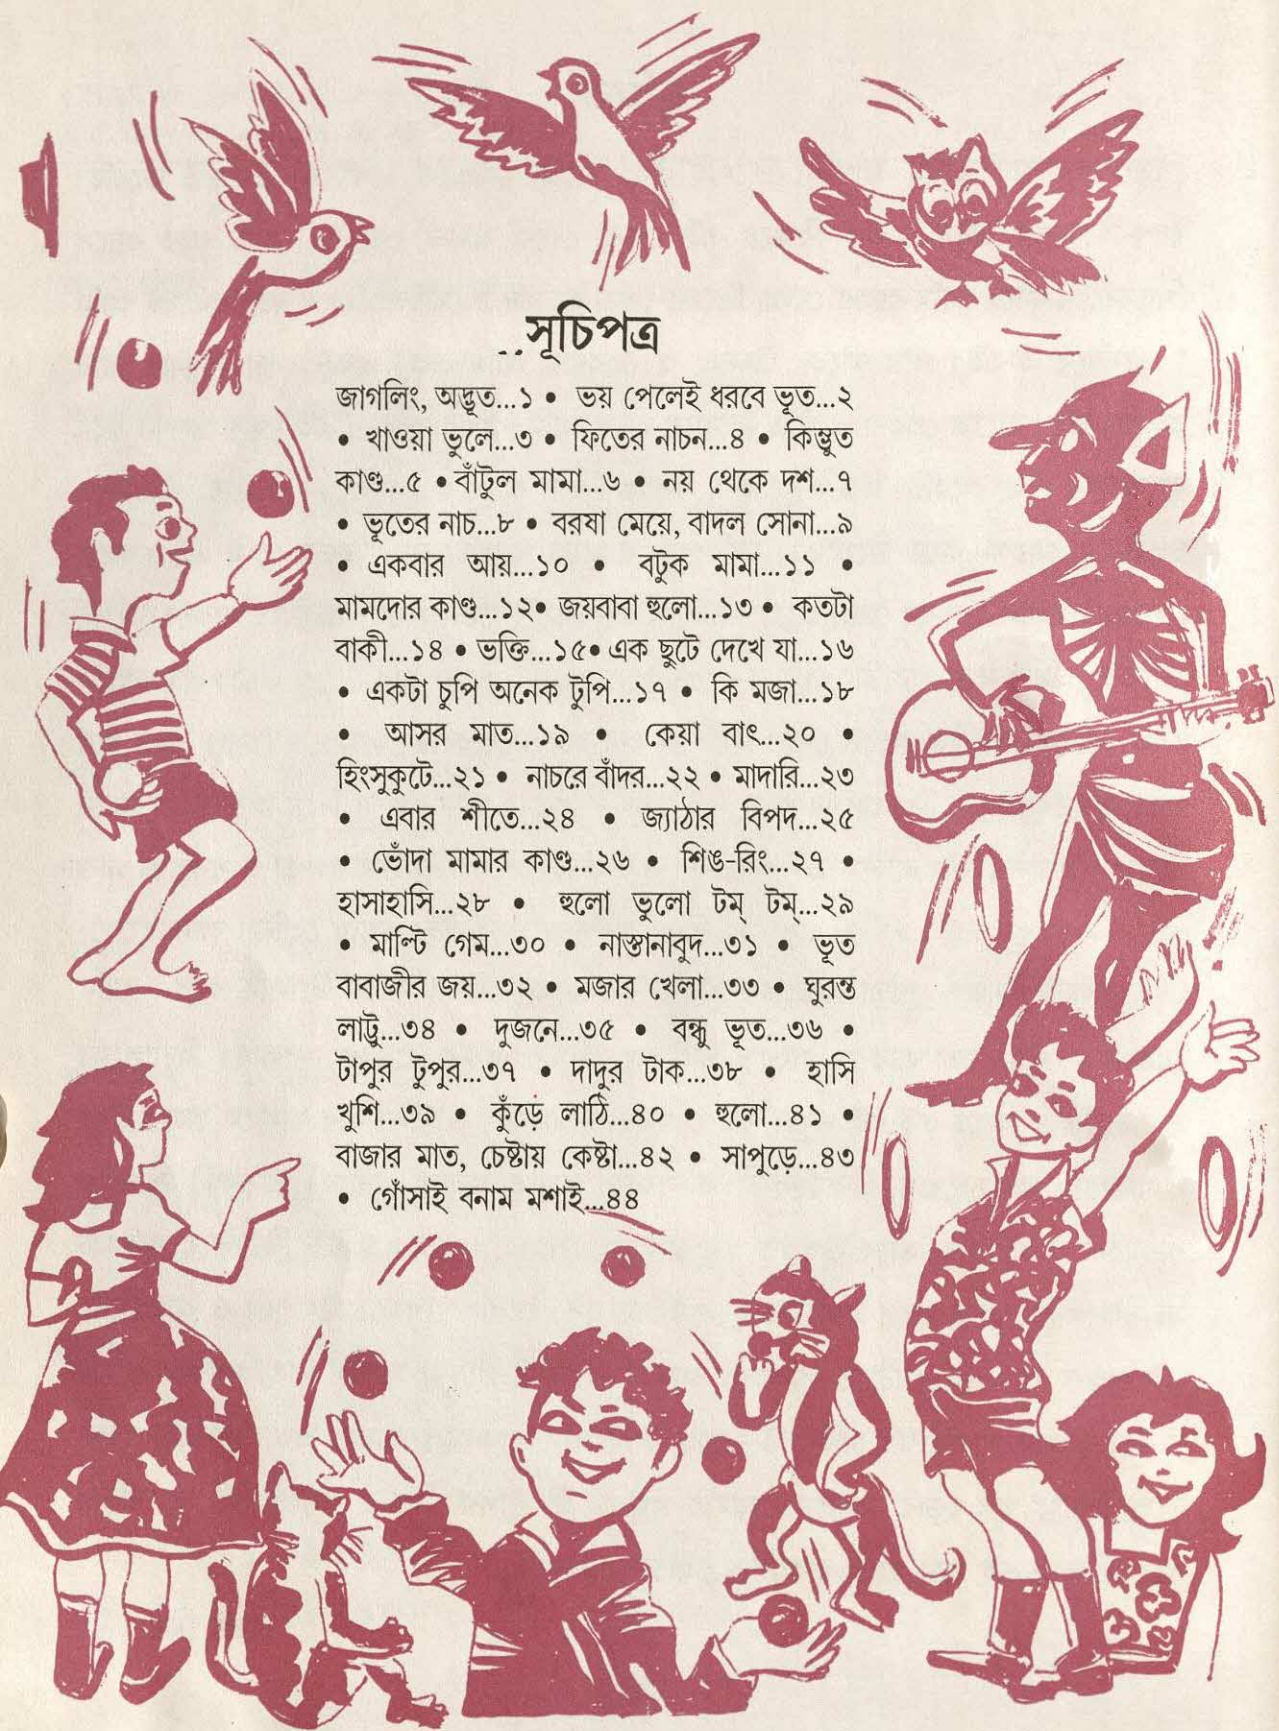 সূচিপত্র
জাগলিং, অদ্ভূত...১ • ভয় পেলেই ধরবে ভূত...২
• খাওয়া ভুলে...৩ • ফিতের নাচন...৪ • কিম্ভুত
কাণ্ড...৫ • বাঁটুল মামা...৬ • নয় থেকে দশ...৭
• ভূতের নাচ...৮ • বরষা মেয়ে, বাদল সোনা...৯
• একবার আয়...১০ • বটুক মামা...১১ •
মামদোর কাণ্ড...১২• জয়বাবা হুলো...১৩ • কতটা
বাকী...১৪ • ভক্তি...১৫• এক ছুটে দেখে যা...১৬
• একটা চুপি অনেক টুপি...১৭ • কি মজা...১৮
• আসর মাত...১৯ • কেয়া বাৎ...২০ •
হিংসুকুটে...২১ • নাচরে বাঁদর...২২ • মাদারি...২৩
• এবার শীতে...২৪ • জ্যাঠার বিপদ...২৫
• ভোঁদা মামার কাণ্ড...২৬ • শিঙ-রিং...২৭ •
হাসাহাসি...২৮ • হুলো ভুলো টম্ টম্...২৯
• মাল্টি গেম...৩০ • নাস্তানাবুদ...৩১ • ভূত
বাবাজীর জয়...৩২ • মজার খেলা...৩৩ • ঘুরন্ত
লাট্টু...৩৪ • দুজনে...৩৫ • বন্ধু ভূত...৩৬ •
টাপুর টুপুর...৩৭ • দাদুর টাক...৩৮ • হাসি
খুশি...৩৯ • কুঁড়ে লাঠি...৪০ • হুলো...৪১ •
বাজার মাত, চেষ্টায় কেষ্টা...৪২ • সাপুড়ে...৪৩
• গোঁসাই বনাম মশাই...৪৪